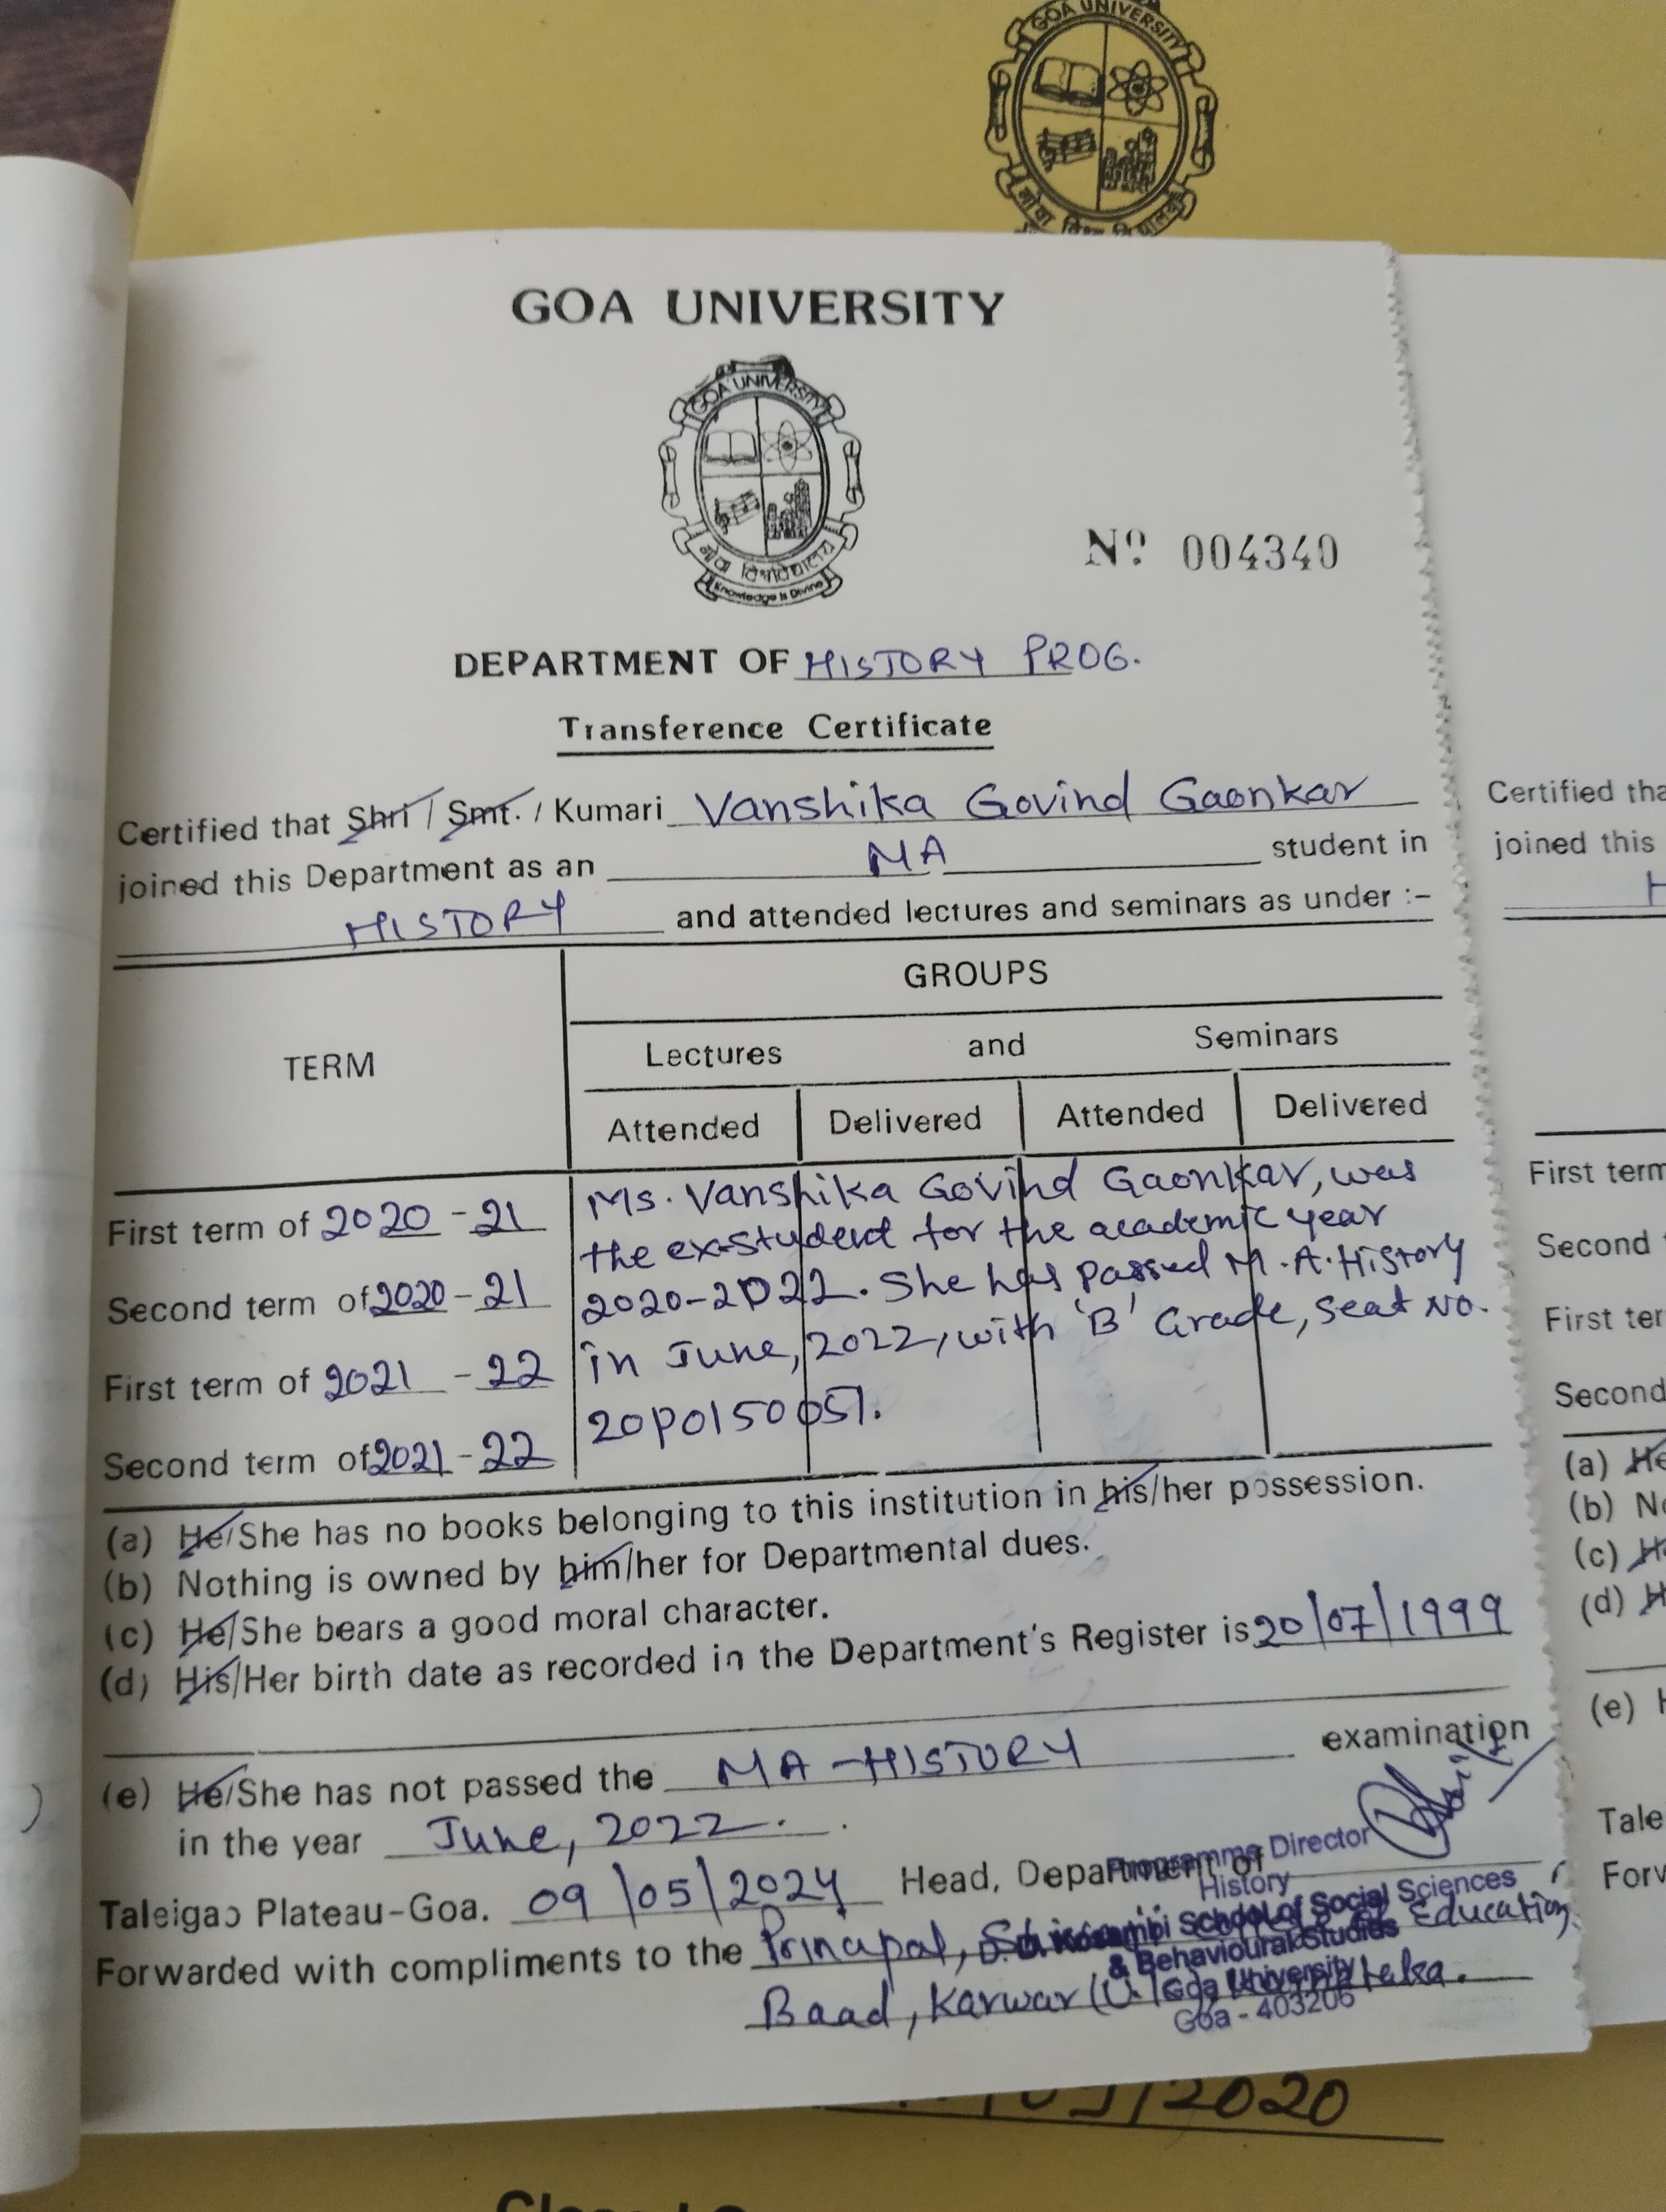 GOA UNIVERSITY
GOA UNIVERSITY
GOA UNIVERSITY
गोवा विश्वविद्यालय
Knowledge is Divine
Nº 004340
DEPARTMENT OF HISTORY PROG.
Transference Certificate
Certified that Shri / Smt. / Kumari Vanshika Govind Gaonkar
joined this Department as an MA student in
HISTORY and attended lectures and seminars as under :-
TERM
GROUPS
Lectures and Seminars
Attended Delivered Attended Delivered
First term of 2020-21
Second term of 2020-21
First term of 2021-22
Second term of 2021-22
Ms. Vanshika Govind Gaonkar, was
the ex-student for the academic year
2020-2022. She has passed M.A. History
in June, 2022, with 'B' Grade, Seat No.
20P0150051.
(a) He/She has no books belonging to this institution in his/her possession.
(b) Nothing is owned by him/her for Departmental dues.
(c) He/She bears a good moral character.
(d) His/Her birth date as recorded in the Department's Register is 20/07/1999
(e) He/She has not passed the MA-HISTORY examination
in the year June, 2022.
Taleigao Plateau-Goa. 09/05/2024 Head, Department of
Forwarded with compliments to the Principal, Education,
Baad, Karwar
Programme Director
History
D. D. Kosambi School of Social Sciences
& Behavioural Studies
Goa University
Goa - 403206
Certified tha
joined this
H
First term
Second
First ter
Second
(a) He
(b) No
(c) H
(d) H
(e) H
Tale
Forw
/2020